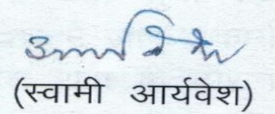 (स्वामी आर्यवेश)